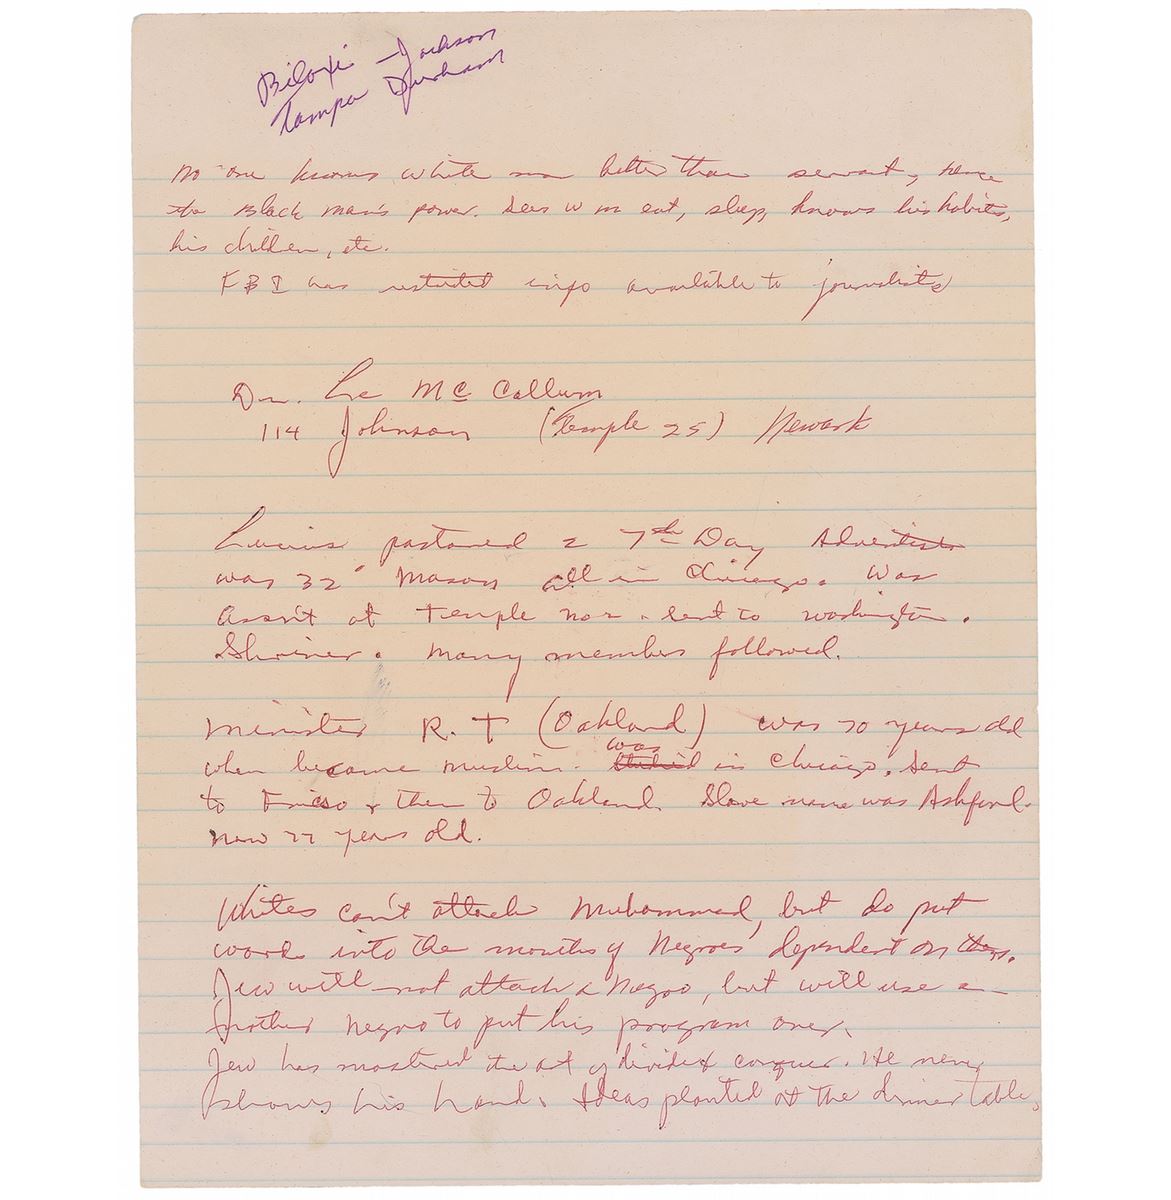 Biloxi - Jackson
Tampa Durham
No one knows white man better than servant, hence
the Black man's power. Sees w m eat, sleep, knows his habits,
his children, etc.
FBI has restricted info available to journalists
Dr. Leo McCallum
114 Johnson (Temple 25) Newark
Lucius pastored 2 7th Day Adventists
was 32° Mason all in Chicago. Was
Assn't at Temple sent to Washington.
Shriner. Many members followed.
Minister R. T (Oakland) was 70 years old
when became muslim. was in Chicago. Sent
to Frisco & then to Oakland. Slave name was Ashford.
Now 77 years old.
Whites can't attack Muhammad, but do put
words into the mouths of Negroes dependent on them.
Jew will not attack a Negro, but will use a-
nother negro to put his program over.
Jew has mastered the art of divide & conquer. He never
shows his hand. Ideas planted at the dinner table.